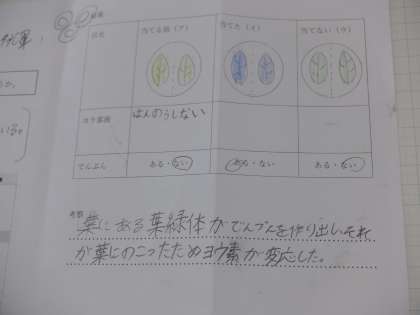 結果
方法
当てる前(ア)
当てた(イ)
当てない(ウ)
ヨウ素液
はんのうしない
でんぷん
ある・ない
ある・ない
ある・ない
考察
葉にある葉緑体がでんぷんを作り出し、それ
が葉にのこったためヨウ素が変応した。